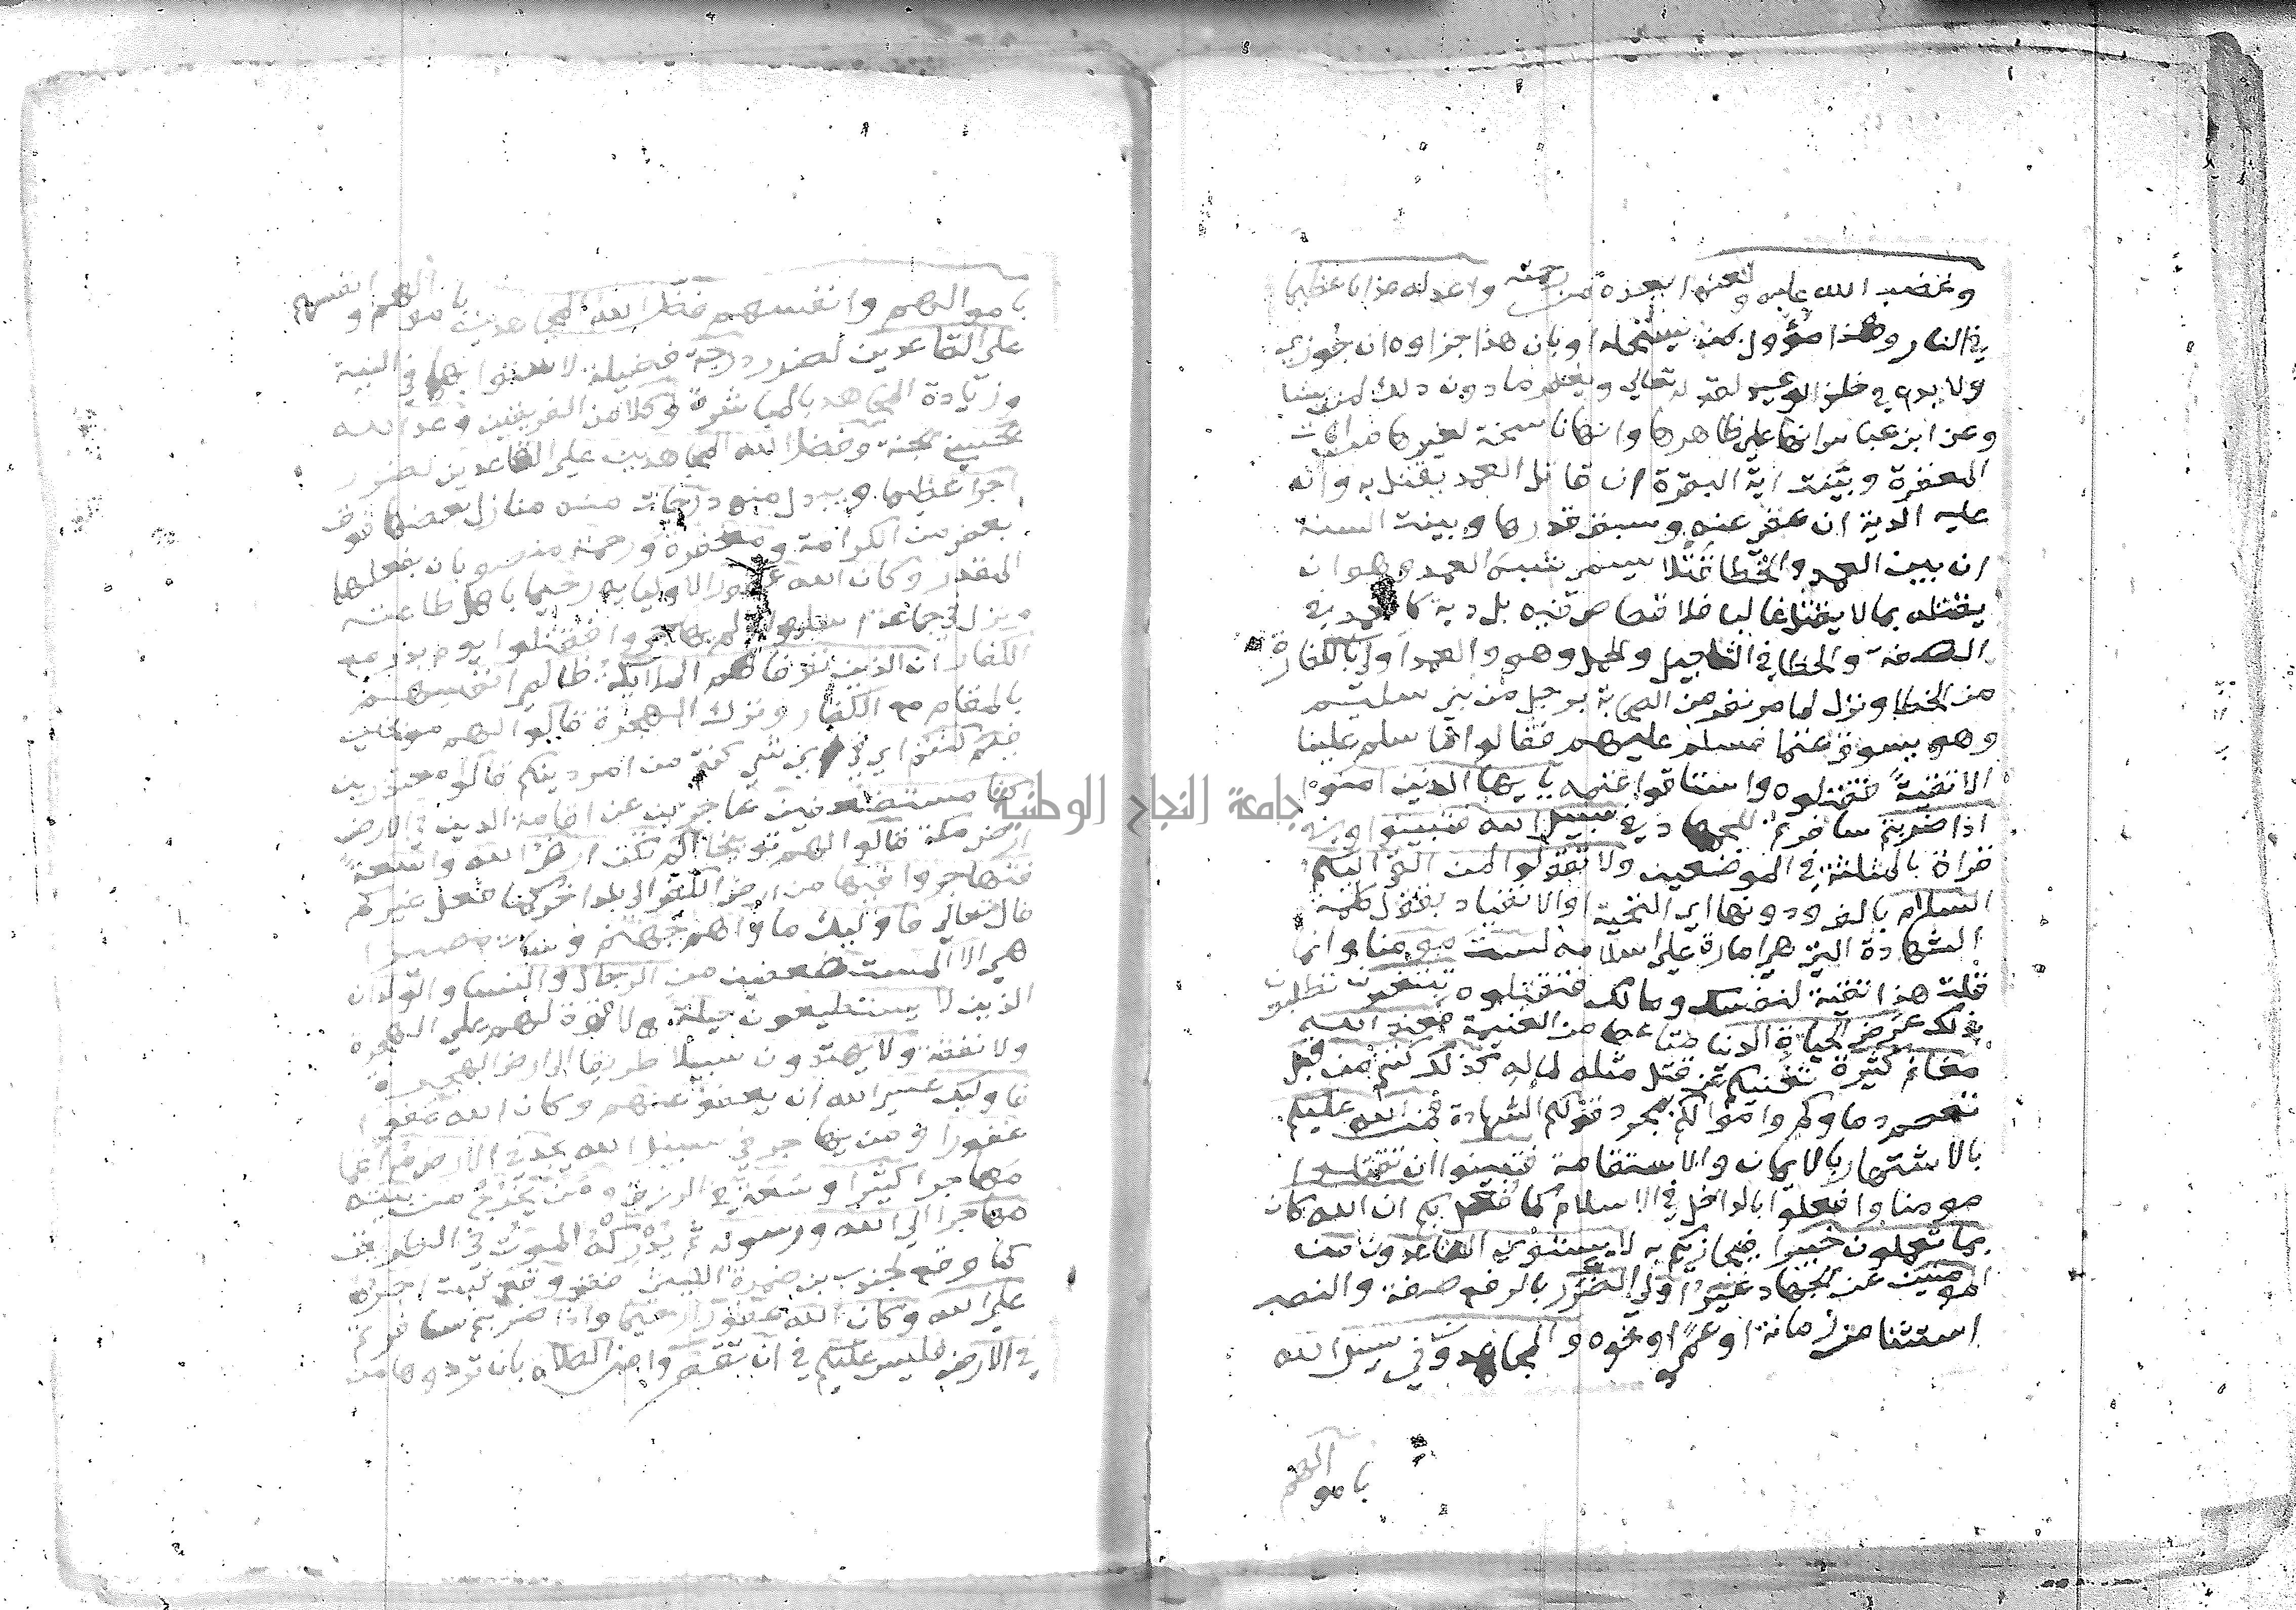 وغضب الله عليه ولعنه ابعده من رحمته واعد له عذابا عظيما
في النار وهذا مؤول بمن يستحله او بان هذا جزاوه ان جوزي
ولا بدع في خلف الوعيد لقوله تعالى ويغفر ما دون ذلك لمن يشا
وعن ابن عباس انها على ظاهرها وانها ناسخة لغيرها من ايات
المغفرة وبينت اية البقرة ان قاتل العمد يقتل به وان
عليه الدية ان عفي عنه وسبق قدرها وبينت السنة
ان بين العمد والخطا قتلا يسمى شبه العمد وهو ان
يقتله بما لا يقتل غالبا فلا قصاص فيه بل دية كالعمد في
الصفة والخطا في التاجيل والحمل وهو والعمد اولى بالكفارة
من الخطا ونزل لما مر نفر من الصحابة برجل من بني سليم
وهو يسوق غنما فسلم عليهم فقالوا ما سلم علينا
الا تقية فقتلوه واستاقوا غنمه يا يها الذين امنوا
اذا ضربتم سافرتم للجهاد في سبيل الله فتبينوا وفي
قراة بالمثلثة في الموضعين ولا تقولوا لمن القى اليكم
السلام بالف ودونها اي التحية او الانقياد بقول كلمة
الشهادة التي هي امارة على اسلامه لست مومنا وانما
قلت هذا تقية لنفسك ومالك فتقتلوه تبتغون تطلبون
بذلك عرض الحياة الدنيا متاعها من الغنيمة فعند الله
مغانم كثيرة تغنيكم عن قتل مثله لماله كذلك كنتم من قبل
تعصم دماوكم واموالكم بمجرد قولكم الشهادة فمن الله عليكم
بالاشتهار بالايمان والاستقامة فتبينوا ان تقتلوا
مومنا وافعلوا بالداخل في الاسلام كما فعل بكم ان الله كان
بما تعملون خبيرا فيجازيكم به لا يستوي القاعدون من
المومنين عن الجهاد غير اولي الضرر بالرفع صفة والنصب
استثنا من زمانة او عمى او نحوه والمجاهدون في سبيل الله
باموالهم
باموالهم وانفسهم فضل الله المجاهدين باموالهم وانفسهم
على القاعدين لضرر درجة فضيلة لاستوايهما في النية
وزيادة المجاهد بالمباشرة وكلا من الفريقين وعد الله
الحسنى الجنة وفضل الله المجاهدين على القاعدين لغير ضرر
اجرا عظيما ويبدل منه درجات منه منازل بعضها فوق
بعض من الكرامة ومغفرة ورحمة منصوبان بفعلهما
المقدر وكان الله غفورا لاوليايه رحيما باهل طاعته
ونزل في جماعة اسلموا ولم يهاجروا فقتلوا يوم بدر مع
الكفار ان الذين توفاهم الملايكة ظالمي انفسهم
بالمقام مع الكفار وترك الهجرة قالوا لهم موبخين
فيم كنتم اي في اي شي كنتم من امر دينكم قالوا معتذرين
كنا مستضعفين عاجزين عن اقامة الدين في الارض
ارض مكة قالوا لهم توبيخا الم تكن ارض الله واسعة
فتهاجروا فيها من ارض الكفر الى بلد اخر كما فعل غيركم
قال تعالى فاوليك ماواهم جهنم وساءت مصيرا
هي الا المستضعفين من الرجال والنسا والولدان
الذين لا يستطيعون حيلة لا قوة لهم على الهجرة
ولا نفقة ولا يهتدون سبيلا طريقا الى ارض الهجرة
فاوليك عسى الله ان يعفو عنهم وكان الله عفوا
غفورا ومن يهاجر في سبيل الله يجد في الارض مراغما
مهاجرا كثيرا وسعة في الرزق ومن يخرج من بيته
مهاجرا الى الله ورسوله ثم يدركه الموت في الطريق
كما وقع لجندب بن ضمرة الليثي فقد وقع ثبت اجره
على الله وكان الله غفورا رحيما واذا ضربتم سافرتم
في الارض فليس عليكم في ان تقصروا من الصلاة بان تردوها من
جامعة النجاح الوطنية